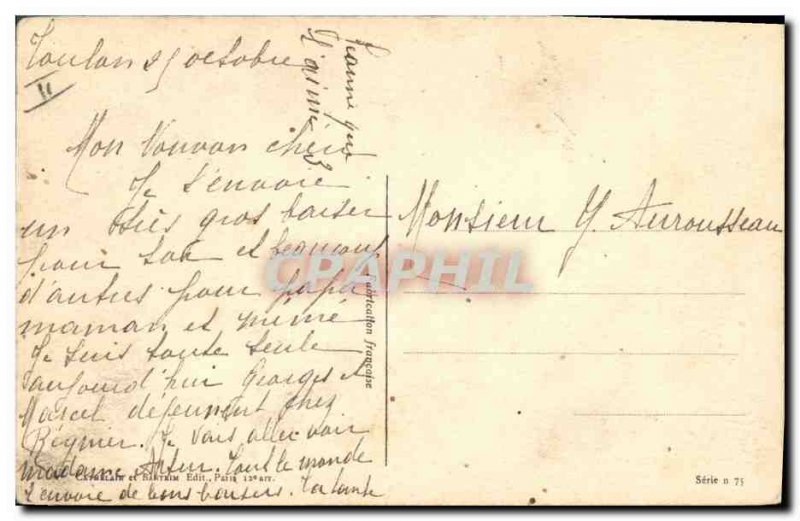 Toulon 25 octobre
11
Mon Vouvon chéri
Je t'envoie
un très gros baiser
pour toi et beaucoup
d'autres pour papa
maman et mémé
Je suis toute seule
aujourd'hui Georges et
Marcel déjeunent chez
Régnier. Je vais aller voir
madame Tout le monde
t'envoie de bons baisers. Ta tante
Jeanne qui
t'aime
Monsieur Y. Aurousseau
CPAPHIL
Fabrication française
et BARTRIM Edit., Paris 12e arr.
Série n 75